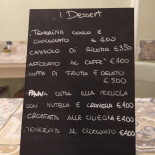 I Dessert
- TENERINA COCCO E
CIOCCOLATO € 4.00
CANNOLO DI RICOTTA € 3.50
AFFOGATO AL CAFFÈ € 4.00
COPPA DI FRUTTA E GELATO
€ 5.00
- PANNA COTTA ALLA NOCCIOLA
CON NUTELLA E GRANELLA € 4.00
CROSTATA ALLE CILIEGIE € 4.00
TENERINA AL CIOCCOLATO € 4.00